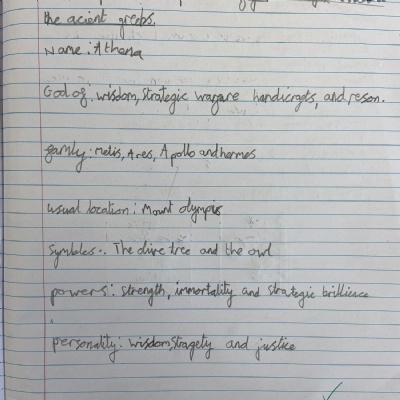 the acient greebs.
Name: Athena
God of: wisdom, strategic wargare handicrapts, and reson.
gamly: metis, Ares, Apollo and hermes
usual location: Mount olympis
Symbles:. The olive tree and the owl
powers: strength, immortality and strategic brillience
personality: wisdom, stragety and justice